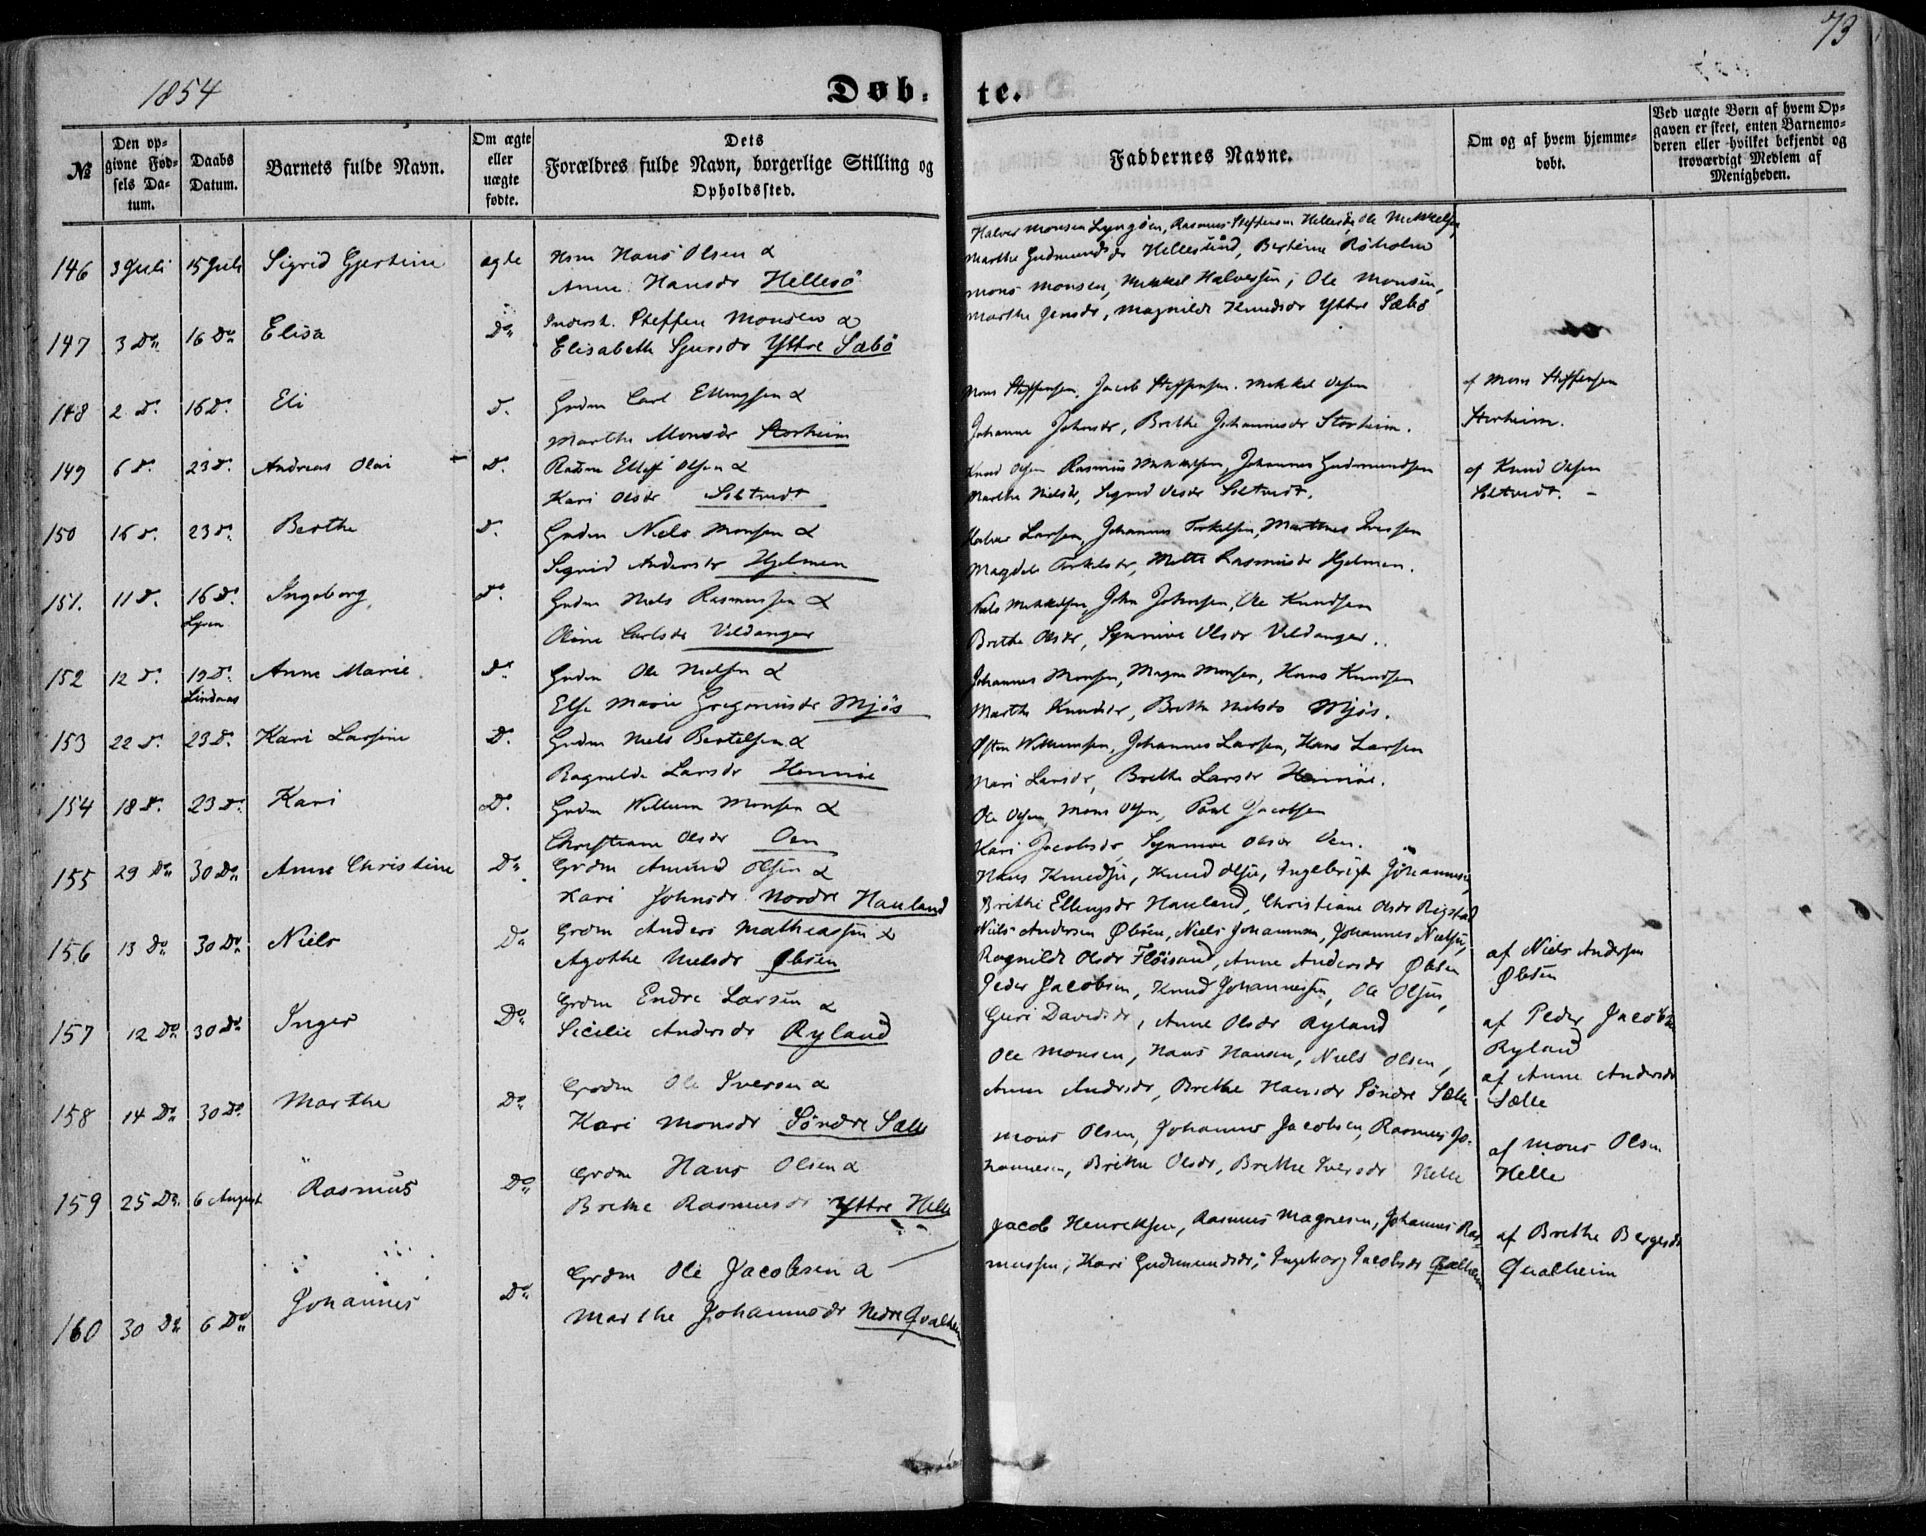 73
1854
Døb. te.
№
Den op-
givne Fød-
sels Da-
tum.
Daabs
Datum.
Barnets fulde Navn.
Om ægte
eller
uægte
fødte.
Dets
Forældres fulde Navn, borgerlige Stilling og
Opholdssted.
Faddernes Navne.
Om og af hvem hjemme-
døbt.
Ved uægte Børn af hvem Op-
gaven er skeet, enten Barnemo-
deren eller hvilket bekjendt og
troværdigt Medlem af
Menigheden.
146 3 Juli 15 Juli Sigrid Gjertine ægte Hsm Hans Olsen &
Anne Hansdr Hellesö
Halver Monsen Lyngöen, Rasmus Steffensen Hellesö, Ole Mikkelsen,
Marthe Gudmundsdr Hellesund, Bertine Röholm
147 3 Do 16 Do Elisa Do Inderst. Steffen Monsen &
Elisabeth Sjursdr Yttre Sæbö
Mons Monsen, Mikkel Halversen, Ole Monsen,
Marthe Jensdr, Magnilde Knudsdr Yttre Sæbö
148 2 D. 16 D. Eli D. Grdm Carl Ellingsen &
Marthe Monsdr Storheim
Mons Steffensen, Jacob Steffensen, Mikkel Olsen
Johanne Johnsdr, Brithe Johannesdr Storheim.
af Mons Steffensen
Storheim.
149 6 D. 23 D. Andreas Olai D. Olsen &
Kari Olsdr Siltvedt
Knud Olsen Rasmus Mikkelsen, Johannes Gudmundsen
Marthe Nielsdr, Sigrid Olsdr Siltvedt.
af Knud Olsen
Siltvedt.
150 16 D. 23 D. Berthe D. Grdm Niels Monsen &
Sigrid Andersdr Hjelmen
Halver Larsen, Johannes Torkelsen, Martines Iversen
Magdele Torkelsdr, Mette Rasmusdr Hjelmen.
151. 11 D. 16 D. Ingeborg D. Grdm Niels Rasmussen &
Lygren
Oline Carlsdr Veldanger
Niels Mikkelsen, John Johnsen, Ole Knudsen
Brithe Olsdr, Synnive Olsdr Veldanger.
152 12 D. 19 D. Anne Marie D. Grdm Ole Nielsen &
Lindaas
Else Marie Gregoriusdr Mjös
Johannes Monsen, Magne Monsen, Hans Knudsen
Marthe Knudsdr, Brithe Nielsdr Mjös.
153 22 D. 23 D. Kari Larsine D. Grdm Niels Bertelsen &
Ragnilde Larsdr Hennöe
Østen Willumsen, Johannes Larsen, Hans Larsen
Mari Larsdr, Brithe Larsdr Hennöe.
154 18 D. 23 D. Kari D. Grdm Willum Monsen &
Christiane Olsdr Oen
Ole Olsen, Mons Olsen, Poul Jacobsen
Kari Jacobsdr Synnove Olsdr Oen.
155 29 Do 30 Do Anne Christine Do Grdm Amund Olsen &
Kari Johnsdr Nordre Hauland
Hans Knudsen, Knud Olsen, Ingebrigt Johannesen,
Brithe Ellingsdr Hauland, Christiane Olsdr Rigstad
156 13 Do 30 Do Niels Do Grdm Anders Mathiassen &
Agothe Nielsdr Øbsen
Niels Andersen Øbsen, Niels Johannesen, Johannes Nielsen,
Ragnilde Olsdr Flöisand, Anne Andersdr Øbsen
af Niels Andersen
Øbsen
157 12 Do 30 Do Inger Do Grdm Endre Larsen &
Sicilie Andersdr Ryland
Peder Jacobsen, Knud Johannesen, Ole Olsen,
Guri Davidsdr, Anne Olsdr Ryland
af Peder Jacobsen
Ryland
158 14 Do 30 Do Marthe Do Grdm Ole Iversen &
Kari Monsdr Söndre Sælle
Ole Monsen, Hans Hansen, Niels Olsen,
Anne Andersdr, Brithe Hansdr Söndre Sælle
af Anne Andersdr
Sælle
159 25 Do 6 August Rasmus Do Grdm Hans Olsen &
Brithe Rasmusdr Yttre Helle
Mons Olsen, Johannes Jacobsen, Rasmus Jo-
hannesen, Brithe Olsdr, Brithe Iversdr Helle
af Mons Olsen
Helle
160 30 Do 6 Do Johannes Do Grdm Ole Jacobsen &
Marthe Johannesdr Nedre Qvalheim
Jacob Henriksen, Rasmus Magnesen, Johannes Ras-
mussen, Kari Gudmundsdr, Ingeborg Jacobsdr Qvalheim
af Brithe Bergesdr
Qvalheim